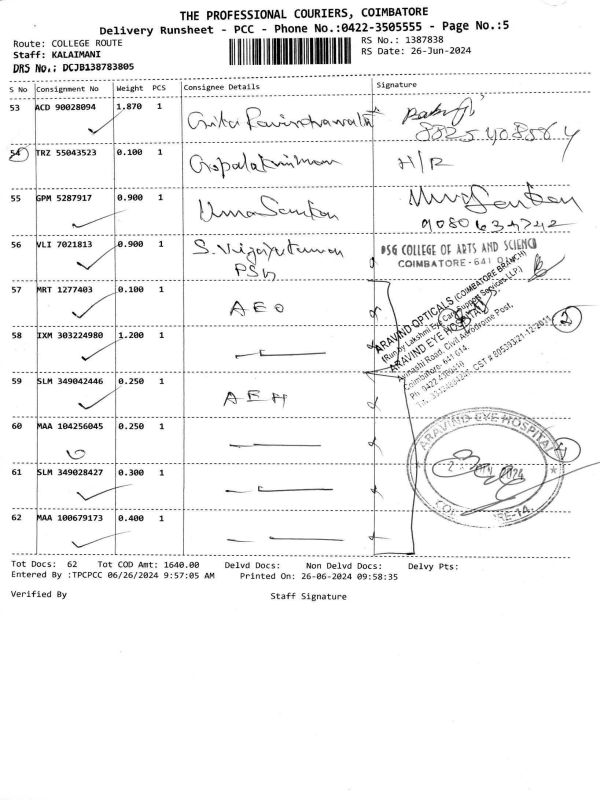 THE PROFESSIONAL COURIERS, COIMBATORE
Delivery Runsheet - PCC - Phone No.:0422-3505555 - Page No.:5
Route: COLLEGE ROUTE
RS No.: 1387838
Staff: KALAIMANI
RS Date: 26-Jun-2024
DRS No.: DCJB138783805
S No Consignment No Weight PCS Consignee Details Signature
53 ACD 90028094 1.870 1
54 TRZ 55043523 0.100 1 Gopalakrishnan H/R
55 GPM 5287917 0.900 1 Uma Sankar
9080634742
56 VLI 7021813 0.900 1 S. Vijayakumar
PSG
PSG COLLEGE OF ARTS AND SCIENCE
COIMBATORE - 641 014
57 MRT 1277403 0.100 1 AEO
ARAVIND OPTICALS (COIMBATORE BRANCH)
(Run by Lakshmi Eye Care Support Services LLP)
ARAVIND EYE HOSPITAL
Avinashi Road, Civil Aerodrome Post,
Coimbatore- 641 014.
2
58 IXM 303224980 1.200 1
59 SLM 349042446 0.250 1 AEH
60 MAA 104256045 0.250 1
ARAVIND EYE HOSPITAL
2024
61 SLM 349028427 0.300 1
62 MAA 100679173 0.400 1
Tot Docs: 62 Tot COD Amt: 1640.00 Delvd Docs: Non Delvd Docs: Delvy Pts:
Entered By :TPCPCC 06/26/2024 9:57:05 AM Printed On: 26-06-2024 09:58:35
Verified By Staff Signature